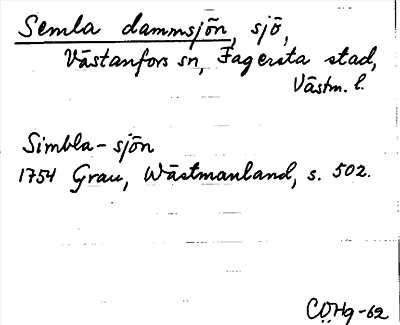 Semla dammsjön, sjö,
Västanfors sn, Fagersta stad,
Västm. l.
Simbla-sjön
1754 Grau, Wästmanland, s. 502.
CÖHg-62